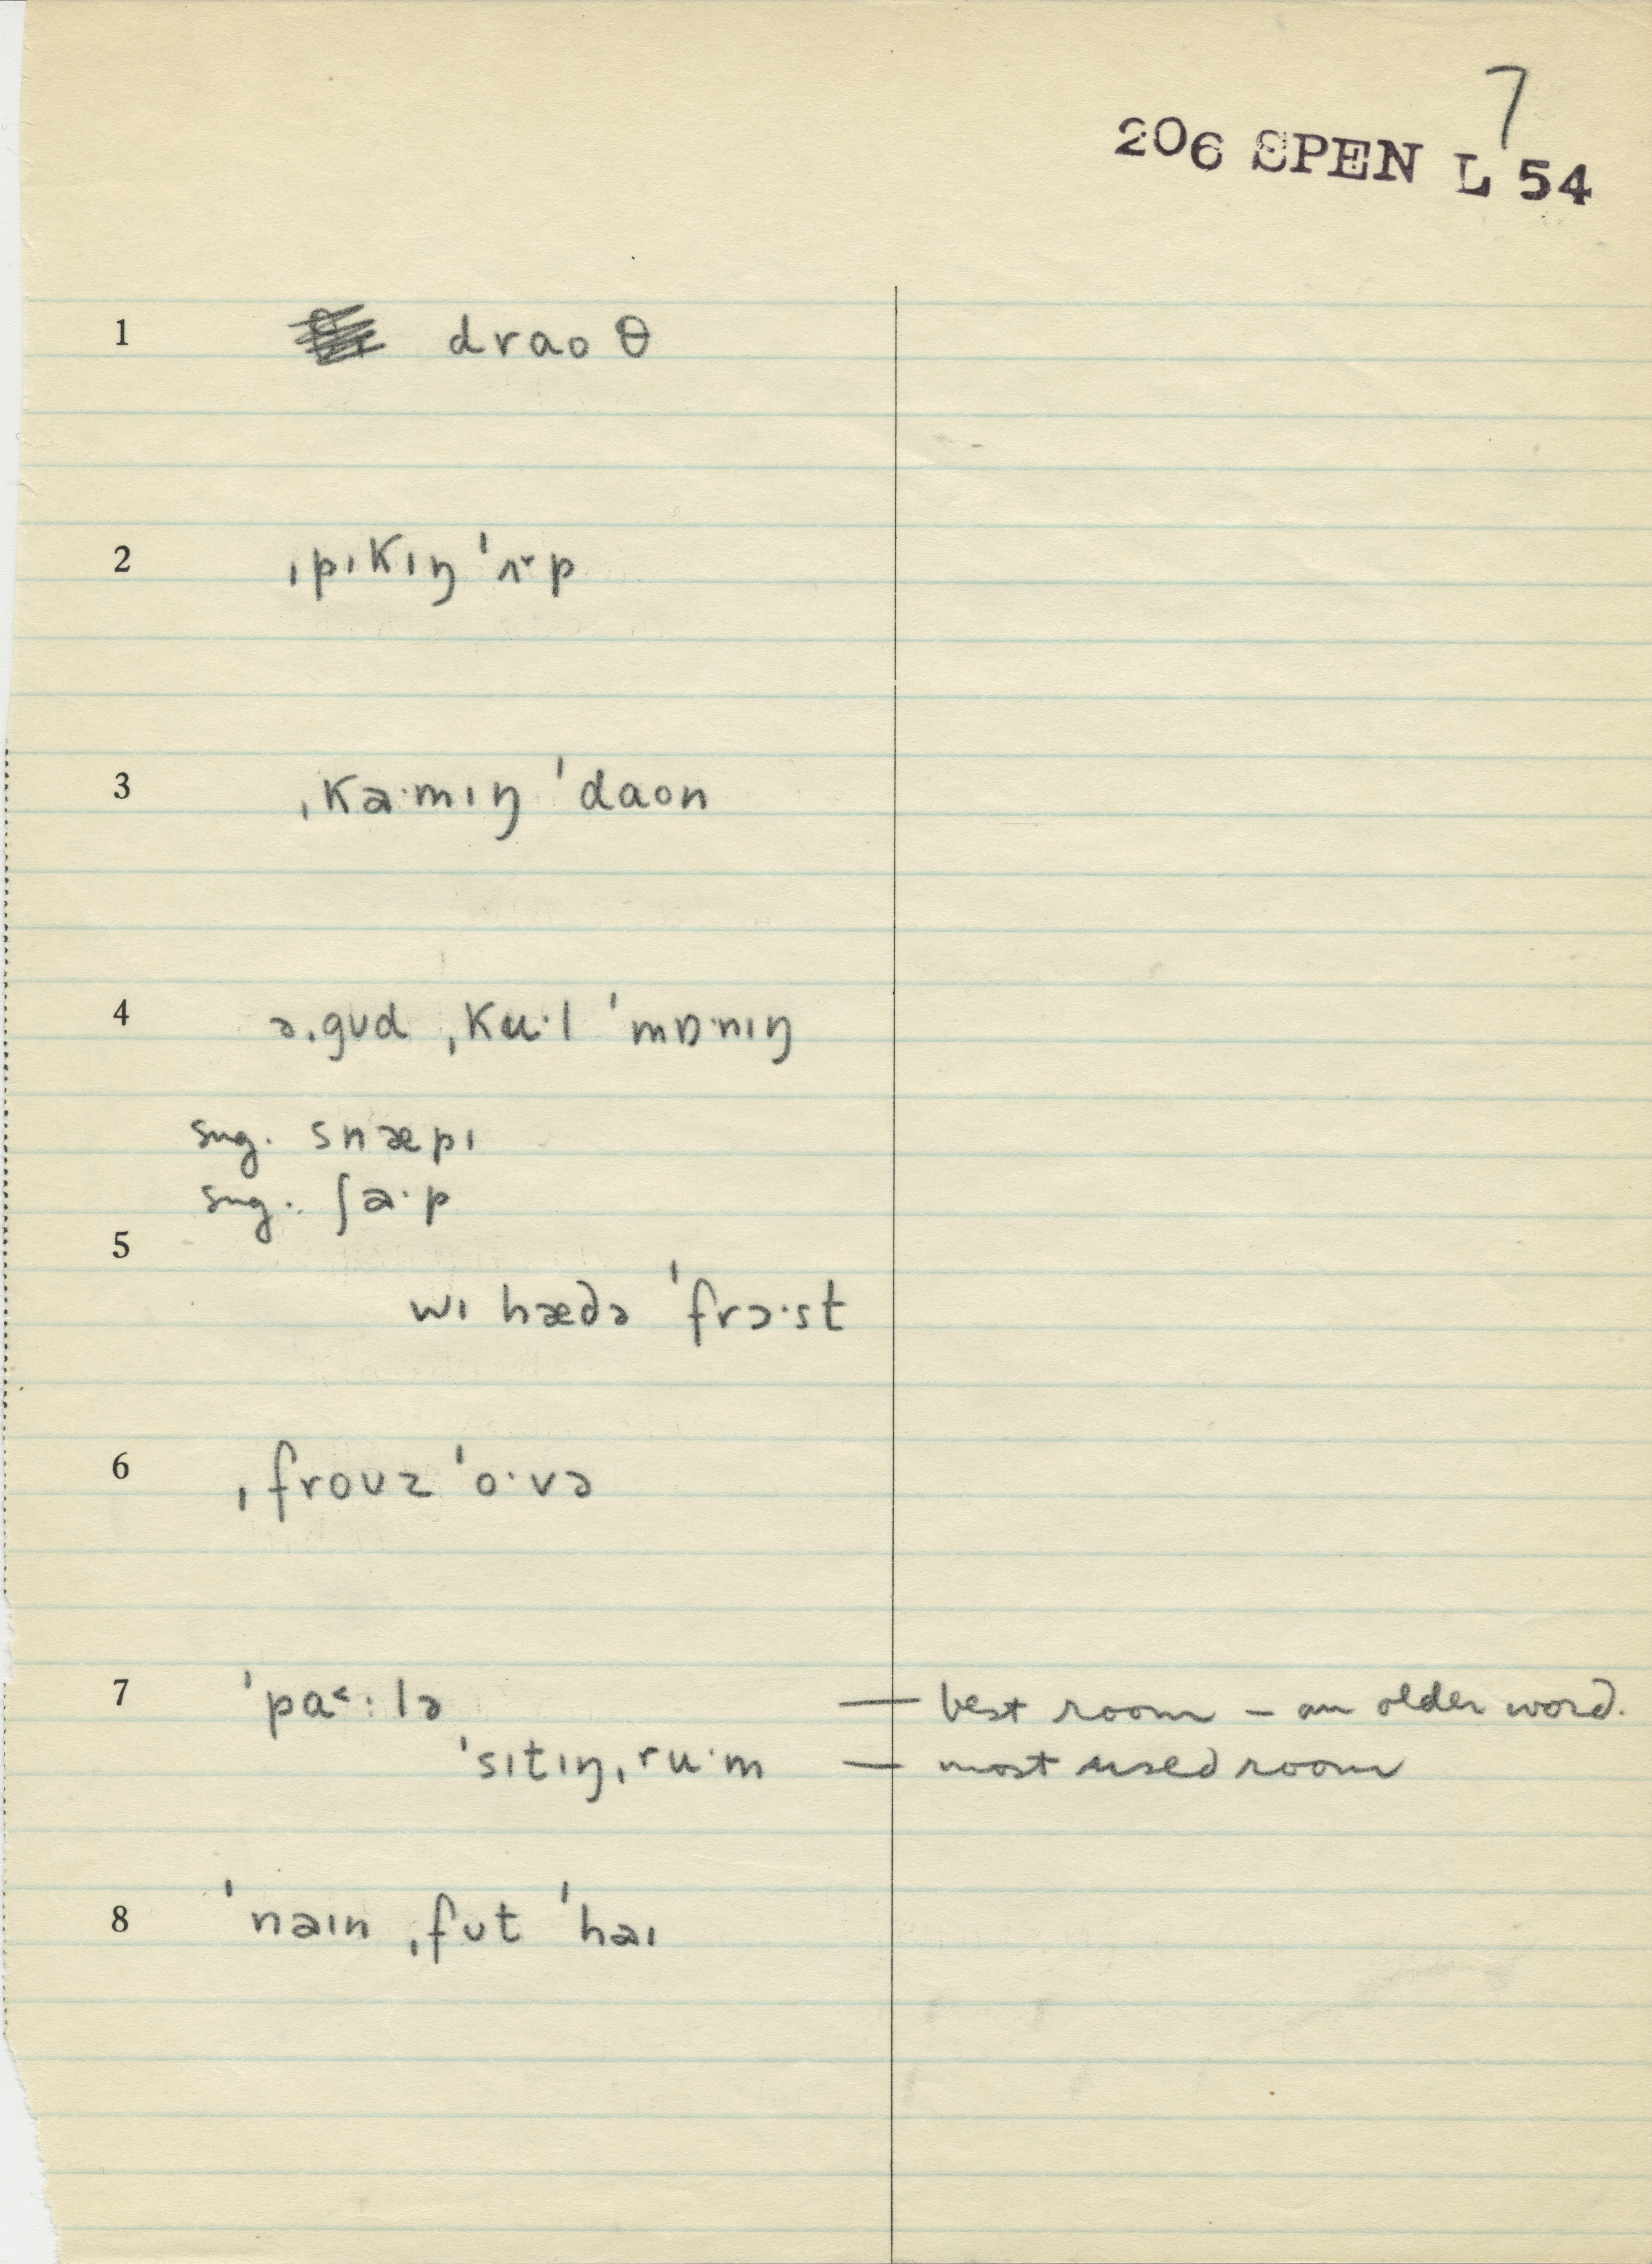 7
206 SPEN L 54
1 draoθ
2 ˌpɪkɪŋ ˈʌ˅p
3 ˌkəˑmɪŋ ˈdaon
4 ə ˌgʊd ˌkuˑl ˈmɒˑnɪŋ
sug. snæpɪ
sug. ʃaˑp
5
wɪ hædə ˈfrɔˑst
6 ˌfroʊz ˈoˑvə
7 ˈpa˂ːlə — best room – an older word.
ˈsɪtɪŋˌruˑm — most used room
8 ˈnaɪn ˌfʊt ˈhaɪ